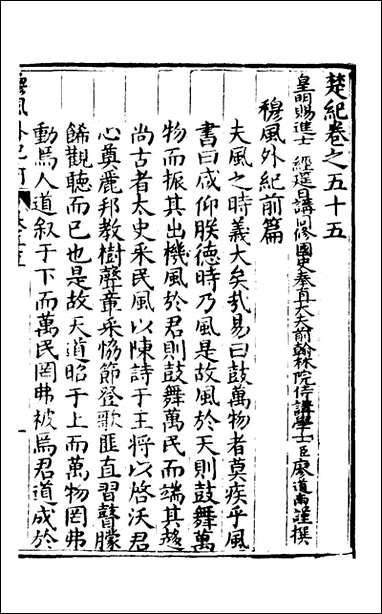 楚紀卷之五十五
皇明賜進士 經筵日講官同修國史奉直大夫前翰林院侍講學士臣廖道南謹撰
穆風外紀前篇
夫風之時義大矣哉易曰鼓萬物者莫疾乎風
書曰咸仰朕德時乃風是故風於天則鼓舞萬
物而振其出機風於君則鼓舞萬民而端其趍
尚古者太史采民風以陳詩于王將以啓沃君
心奠麗邦教樹聲章采恊節登歌匪直習瞽矇
餙觀聽而已也是故天道昭于上而萬物罔弗
動焉人道叙于下而萬民罔弗被焉君道成於